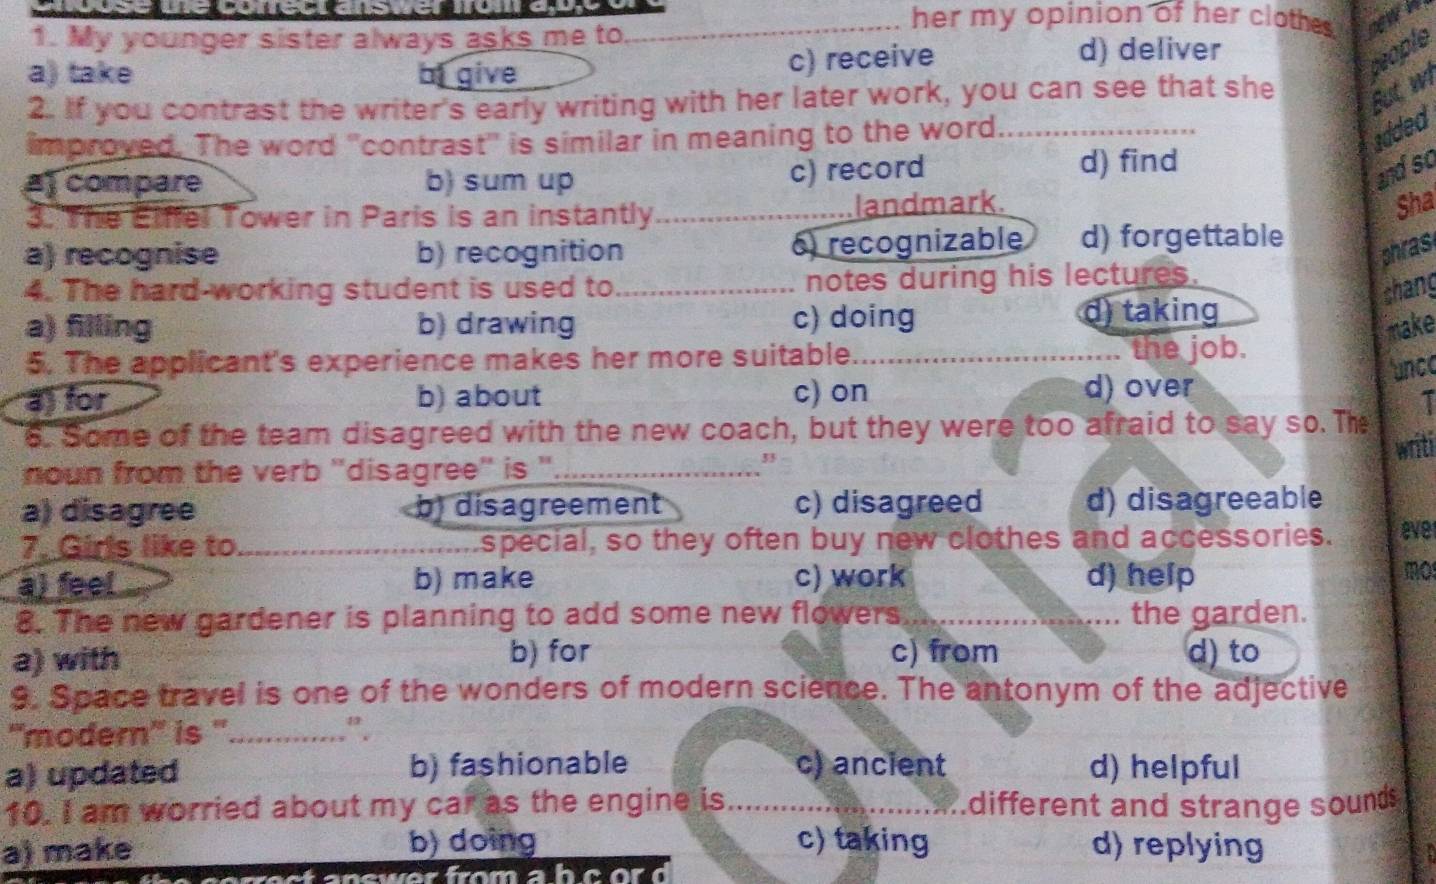 Choose the correct answer from a,b,c or d
1. My younger sister always asks me to.................... her my opinion of her clothes
a) take b) give c) receive d) deliver
2. If you contrast the writer's early writing with her later work, you can see that she
improved. The word "contrast" is similar in meaning to the word.....................
a) compare b) sum up c) record d) find
3. The Eiffel Tower in Paris is an instantly.....................landmark.
a) recognise b) recognition c) recognizable d) forgettable
4. The hard-working student is used to................... notes during his lectures.
a) filling b) drawing c) doing d) taking
5. The applicant's experience makes her more suitable............................ the job.
a) for b) about c) on d) over
6. Some of the team disagreed with the new coach, but they were too afraid to say so. The
noun from the verb "disagree" is "......................"
a) disagree b) disagreement c) disagreed d) disagreeable
7. Girls like to..........................special, so they often buy new clothes and accessories.
a) feel b) make c) work d) help
8. The new gardener is planning to add some new flowers....................... the garden.
a) with b) for c) from d) to
9. Space travel is one of the wonders of modern science. The antonym of the adjective
"modern" is ".............".
a) updated b) fashionable c) ancient d) helpful
10. I am worried about my car as the engine is..........................different and strange sounds
a) make b) doing c) taking d) replying
correct answer from a,b,c or d
people
added
and so
make